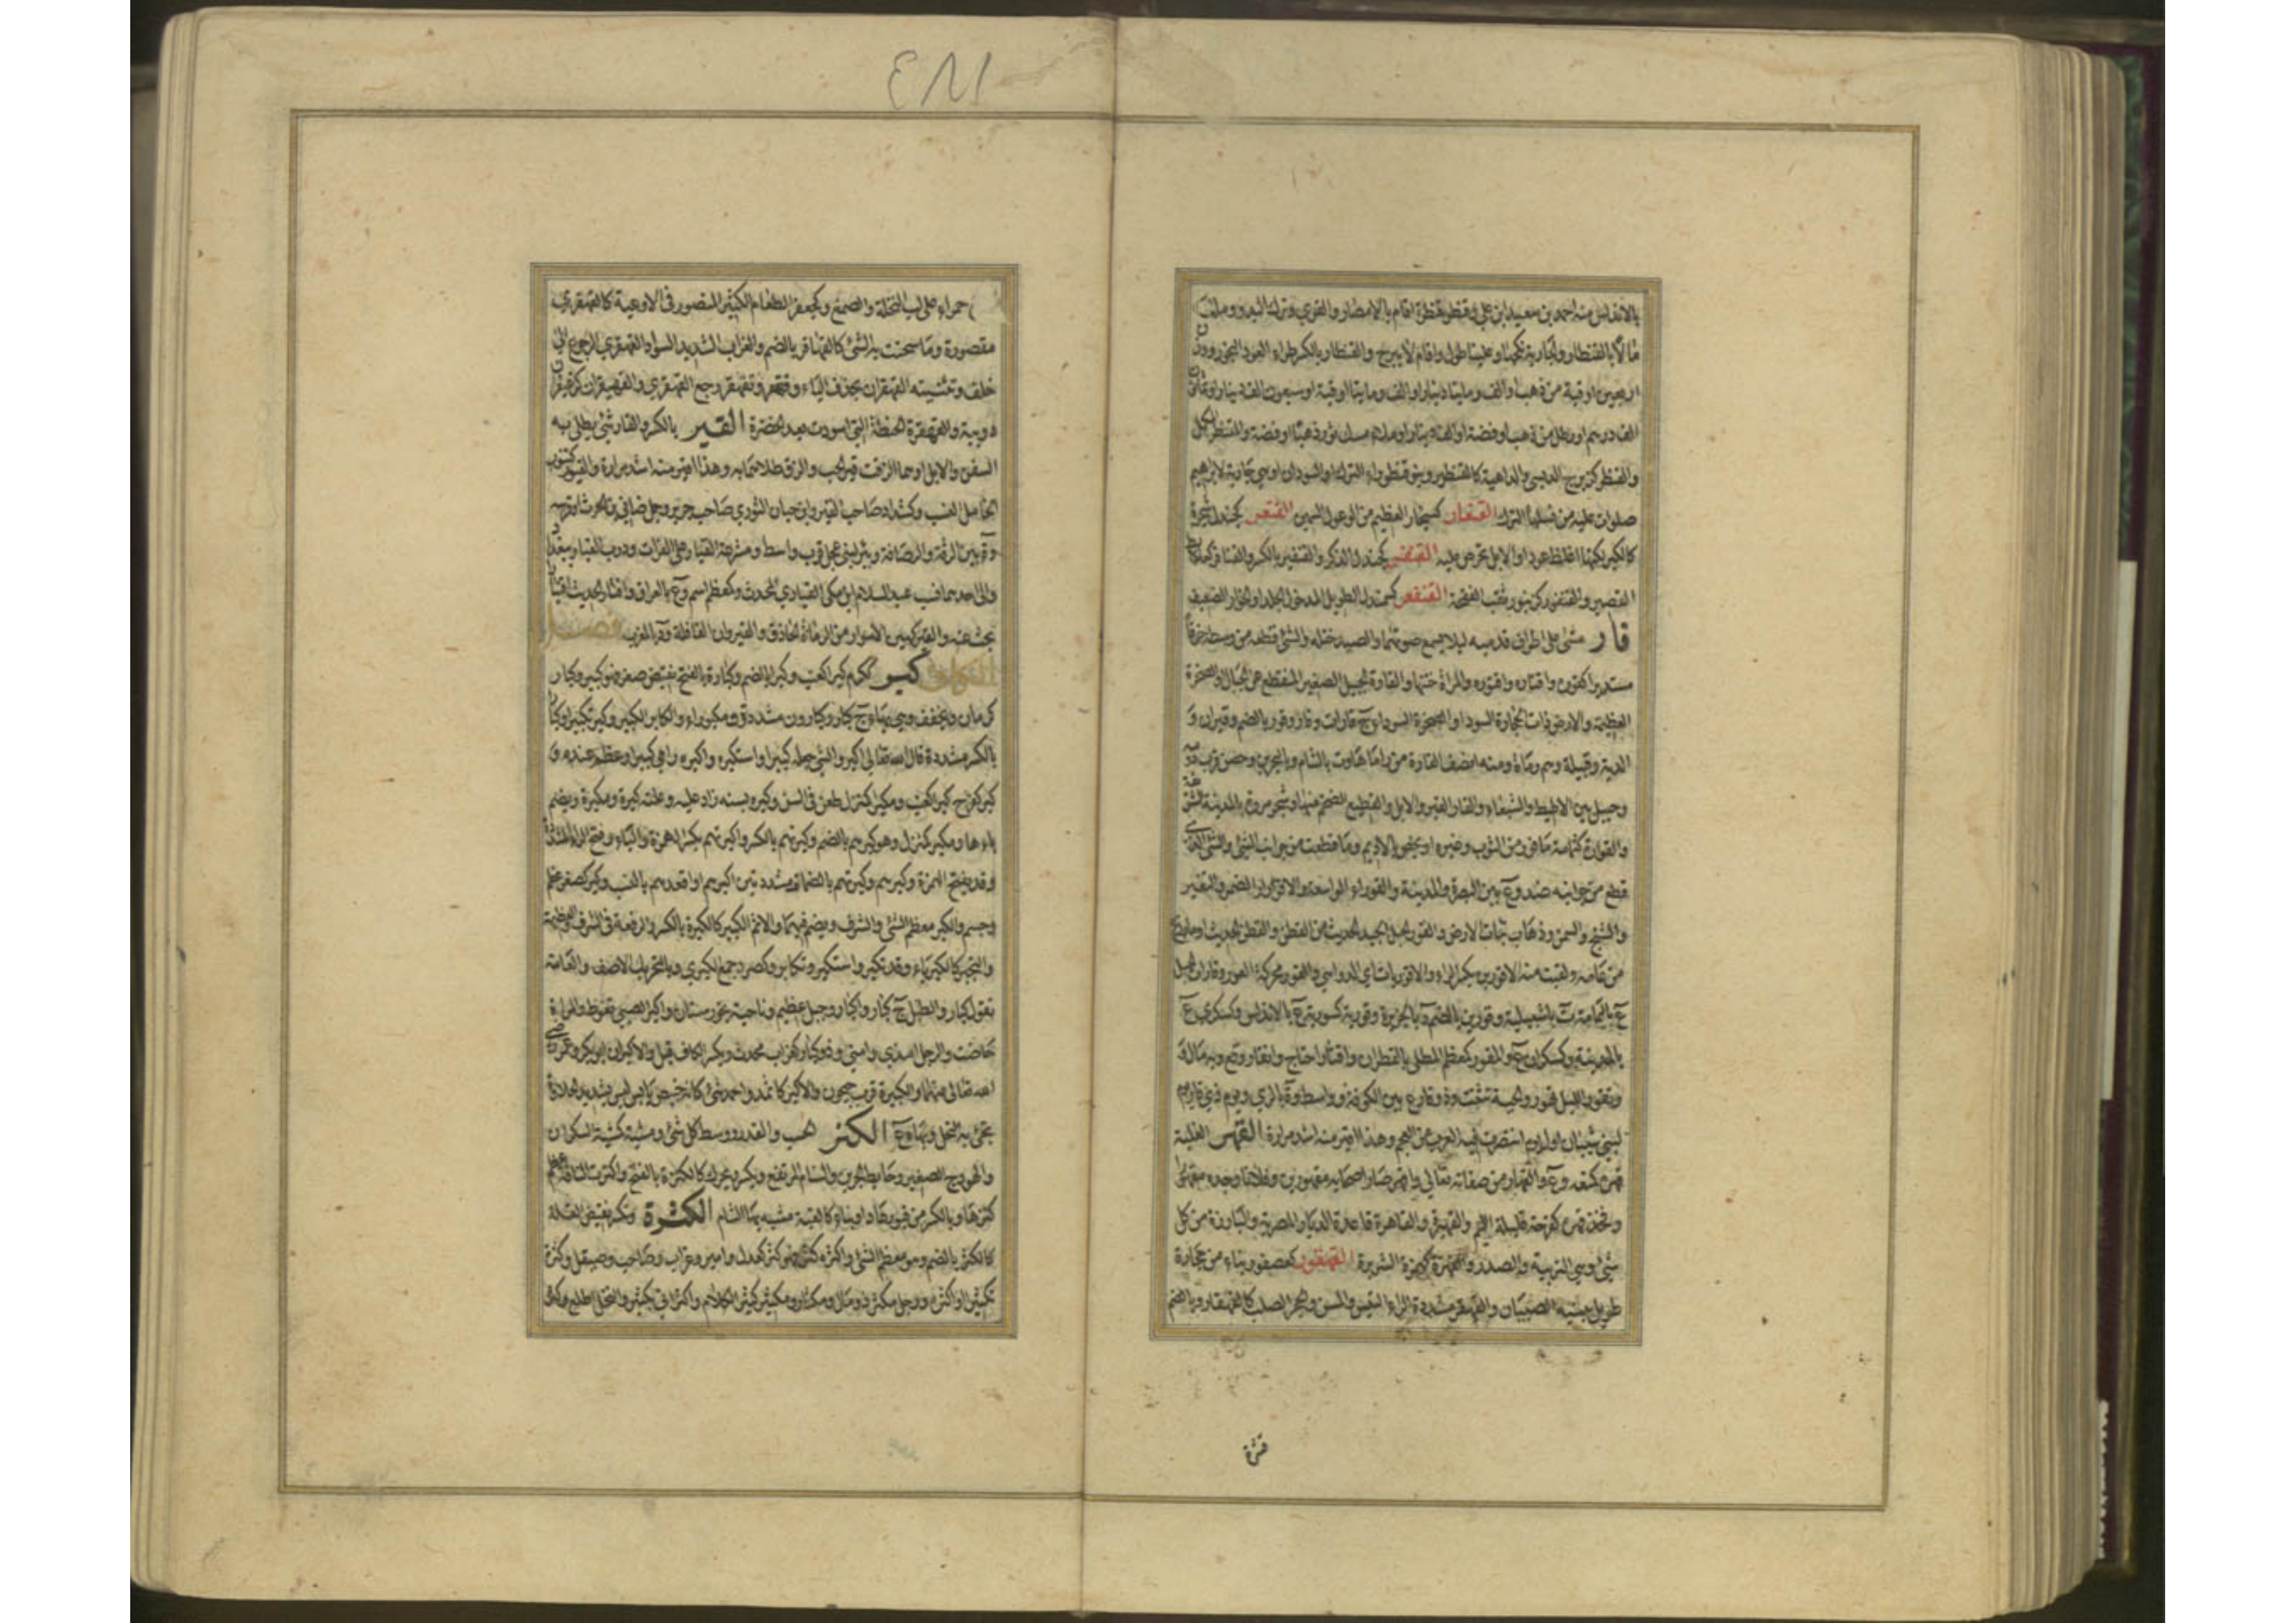 بالاندلس منه احمد بن سعيد ابن علي وقنطر قنطرة اقام بالامصار والقرى وترك البدو وملك
مالا بالقنطار والجارية نكحها وعلينا طول واقام لا يبرح والقنطار بالكسر طراء لعود البخور ووزن
اربعين اوقية من ذهب او الف ومايتا دينار او الف ومايتا اوقية او سبعون الف دينار او ثمانون
الف درهم او رطل من ذهب او فضة او الف دينار او ملء مسك ثور ذهبا او فضة والمقنطر المكمل
والقنطر كزبرج الدبسي والداهية كالقنطير وبنو قنطوراء الترك او السودان او هي جارية لابراهيم
صلوات عليه من نسلها الترك القنغار كسنجار العظيم من الوعول السمين القنغر كجندل شجرة
كالكبر لكنها اغلظ عودا والابل تحرص عليه القنفخر كجندل الذكر والقنفير بالكسر والقنافر كعلابط
القصير والقنفور كزنبور ثقب الفقحة القنقعر كسمندل الطويل المدخول الجلد او الخوار الضعيف
قار مشى على اطراف قدميه ليلا يسمع صوتهما والصيد ختله والشئ قطعه من وسطه خرقا
مستديرا كقوره واقتاره واقتوره والمراة ختنها والقارة الجبيل الصغير المنقطع عن الجبال او الصخرة
العظيمة والارض ذات الحجارة السود او الصخرة السوداء ج قارات وقار وقور بالضم وقيران و
الدبة وقبيلة وهم رماة ومنه انصف القارة من راماها وة بالشام وبالبحرين وحصن قرب دومة
وجبيل بين الاطيط والشبعاء والقار القير والابل والقطيع الضخم منها وشجر مر وة بالمدينة
والقوارة كثمامة ما قور من الثوب وغيره او يخص بالاديم وما قطعت من جوانب الشئ والشئ الذي
قطع من جوانبه ضد وع بين البصرة والمدينة والقوراء الواسعة والاقورار الضمر والتغير
والتشنج والسمن وذهاب نبات الارض والقور الحبل الجيد الحديث من القطن والقطن الحديث او ما زرع
من عامه ولقيت منه الاقورين بكسر الراء والاقوريات اي الدواهي والقور محركة العور وقارات الحبل
ع باليمامة ة باشبيلية وقورين بالضم ة بالجزيرة وقورية كسورية ع بالاندلس وكسكرى ع
بالمدينة وكسكران ع والمقور كمعظم المطلي بالقطران واقتار احتاج وانقار وقع وبه مال و
وتقور الليل تهور والحية تثنت وذو قار ع بين الكوفة وواسط وة بالري ويوم ذي قار يوم
لبني شيبان اول يوم انتصرت فيه العرب من العجم وهذا اقير منه اشد مرارة القهر الغلبة
قهره كمنعه وع والقهار من صفاته تعالى واقهر صار اصحابه مقهورين وفلانا وجده مقهورا
وفخذ قهرة كفرحة قليلة اللحم والقهيرة والقاهرة قاعدة الديار المصرية والبادرة من كل
شئ وهي التربية والصدر والقهرة كهمزة الشريرة القهقور كعصفور بناء من حجارة
طويل يبنيه الصبيان والقهقر مشددة الراء التيس والمسن والحجر الصلب كالقهقار وبالضم
قشرة
٤٨١
حمراء على لب النخلة والصمغ وكجعفر الطعام الكثير المنضود في الاوعية كالقهقري
مقصورة وما سحنت به الشئ كالقهاقر بالضم والغراب الشديد السواد والقهقرى الرجوع الى
خلف وتثنيته القهقران بحذف الياء وقهقر وتقهقر رجع القهقرى والقهيقران كزعيفران
دويبة والقهقرة الحنطة التي اسودت بعد الخضرة القير بالكسر والقار شئ يطلى به
السفن والابل او هما الزفت قير الحب والزق طلاهما به وهذا اقير منه اشد مرارة والقيور كتنور
الخامل النسب وكشداد صاحب القير وابن حيان الثوري صاحب جرير وجمل ضابئ بن الحرث او فرسه
وع بين الرقة والرصافة وبئر لبني عجل قرب واسط ومشرعة القيار على الفرات ودرب القيار ببغداد
والى احدهما نسب عبد السلام ابن مكي القياري المحدث وكمعظم اسم وع بالعراق واقتار الحديث اقتيارا
بحث عنه والقير كهين الاسوار من الرماة الحاذق والقيروان القافلة وة بالمغرب فصل
الكاف كبر ككرم كبرا كعنب وكبرا بالضم وكبارة بالفتح نقيض صغر فهو كبير وكبار
كرمان ويخفف وهي بهاء ج كبار وكبارون مشددة ومكبوراء والكابر الكبير وكبر تكبيرا وكبارا
بالكسر مشددة قال الله تعالى اكبر والشئ جعله كبيرا واستكبره واكبره راه كبيرا وعظم عنده و
كبر كفرح كبرا كعنب ومكبرا كمنزل طعن في السن وكبره بسنة زاد عليه وعلته كبرة ومكبرة ويضم
باءها ومكبر كمنزل وهو كبرهم بالضم وكبرتهم بالكسر واكبرتهم بكسر الهمزة والباء وفتح الراء المشددة
وقد يفتح الهمزة وكبرهم وكبرتهم بالضمات مشددتين اكبرهم او اقعدهم بالنسب وكبر كصغر عظم
وجسم والكبر معظم الشئ والشرف ويضم فيهما والاثم الكبير كالكبرة بالكسر والرفعة في الشرف والعظمة
والتجبر كالكبرياء وقد تكبر واستكبر وتكابر وكصرد جمع الكبرى وبالتحريك الاصف والعامة
تقول كبار والطبل ج كبار واكبار وجبل عظيم وناحية بخوزستان واكبر الصبي تغوط والمراة
حاضت والرجل امذى وامنى وذو كبار كغراب محدث وبكسر الكاف قيل والاكبران ابو بكر وعمر رضي
الله تعالى عنهما والكبيرة ة قرب جيحون والاكبر كاثمد واحمد شئ كانه خبيص يابس ليس بشديد الحلاوة
يجئ به النحل وبهاء ع الكتر الحسب والقدر ووسط كل شئ ومشية كمشية السكران
والهودج الصغير وحايط الجرين والسنام المرتفع ويكسر ويحرك كالكترة بالفتح واكترت الناقة عظم
كترها وبالكسر من قبور عاد او بناء كالقبة شبه بها السنام الكثرة ويكسر نقيض القلة
كالكثر بالضم وهو معظم الشئ واكثره كثر فهو كثر كعدل وامير وغراب وصاحب وصيقل وكثره
تكثيرا واكثره ورجل مكثر ذو مال ومكثار ومكثير كثير الكلام واكثر اتى بكثير والنخل اطلع وكثر